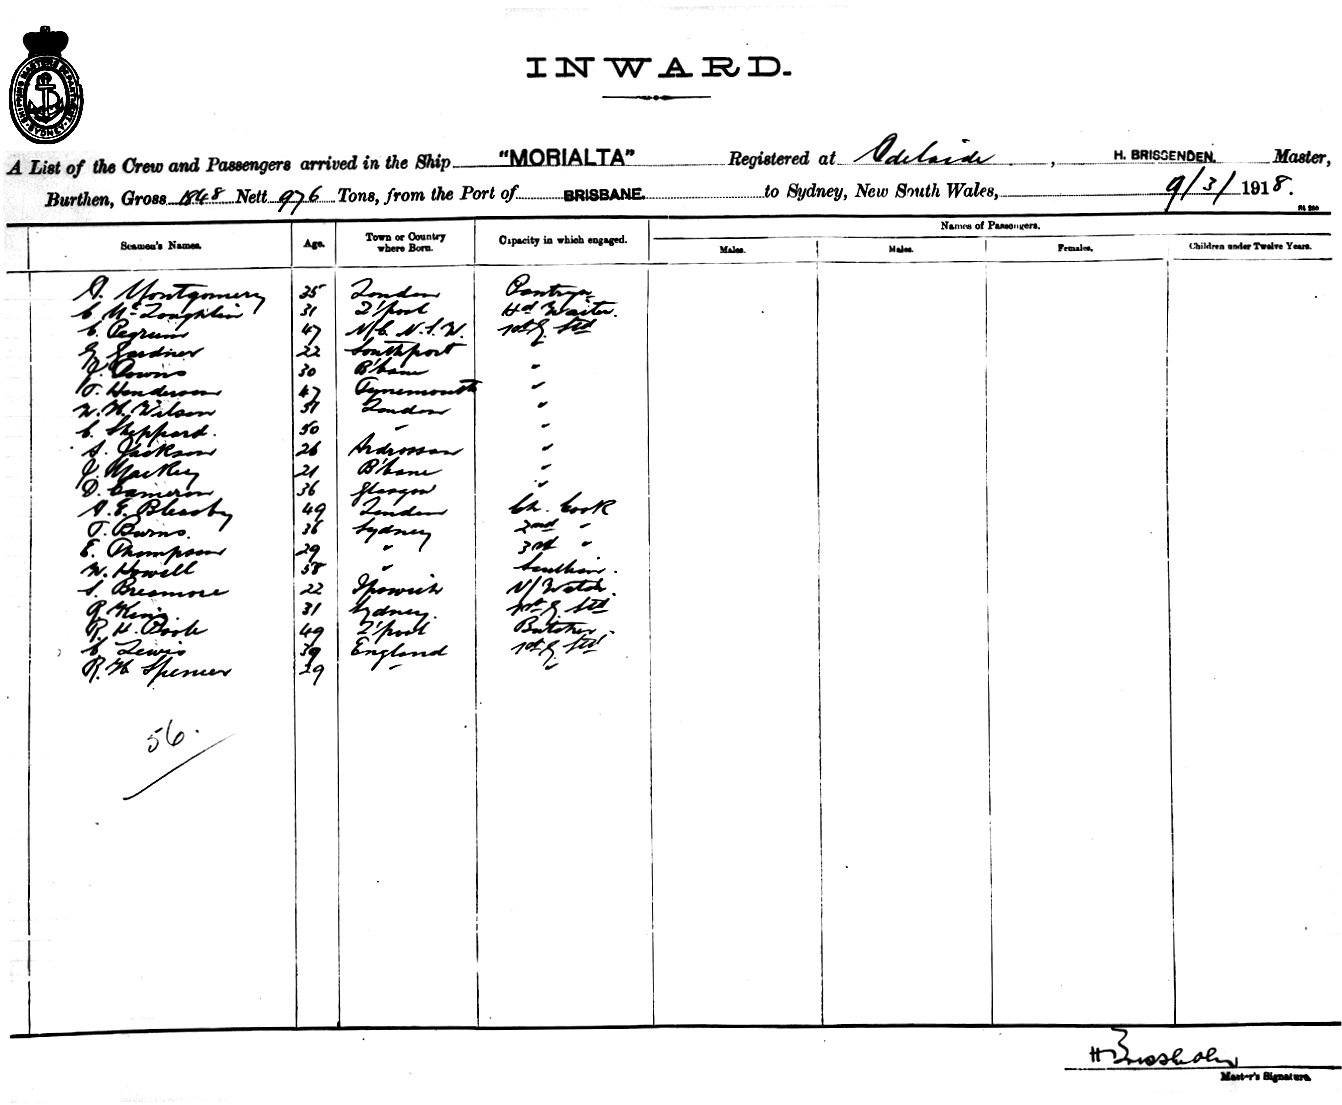 SHIPPING MASTERS DEPARTMENT SYDNEY
INWARD.
A List of the Crew and Passengers arrived in the Ship "MORIALTA" Registered at Adelaide, H. BRISSENDEN. Master,
Burthen, Gross 1848 Nett 976 Tons, from the Port of BRISBANE. to Sydney, New South Wales, 9/3/1918.
Seamen's Names. Age. Town or Country where Born. Capacity in which engaged. Names of Passengers.
Males. Males. Females. Children under Twelve Years.
Montgomery 35 London
C. McLoughlin 31 L'pool Hd Waiter.
C. Pegrum 47 N/C. N.S.W. 1st G. Std
G. Gardner 22 Southport
J. Downs 30 B'bane "
T. Henderson 47 Tynemouth "
W. H. Wilson 51 London "
C. Sheppard. 50 " "
S. Jackson 26 Ardrossan "
J. Mackey 21 B'bane "
D. Cameron 36 Glasgow "
A. E. Bleasby 49 London Ch. Cook
T. Burns. 36 Sydney 2nd "
E. Thompson 29 " 3rd "
W. Howell 58 " Scullion.
S. Breamore 22 Ipswich N/Watch.
R. King 31 Sydney. 1st G. Std
R. H. Poole 49 L'pool Butcher.
C. Lewis 39 England 1st G. Std
R. H. Spencer 29 " "
56.
H Brissenden
Master's Signature.